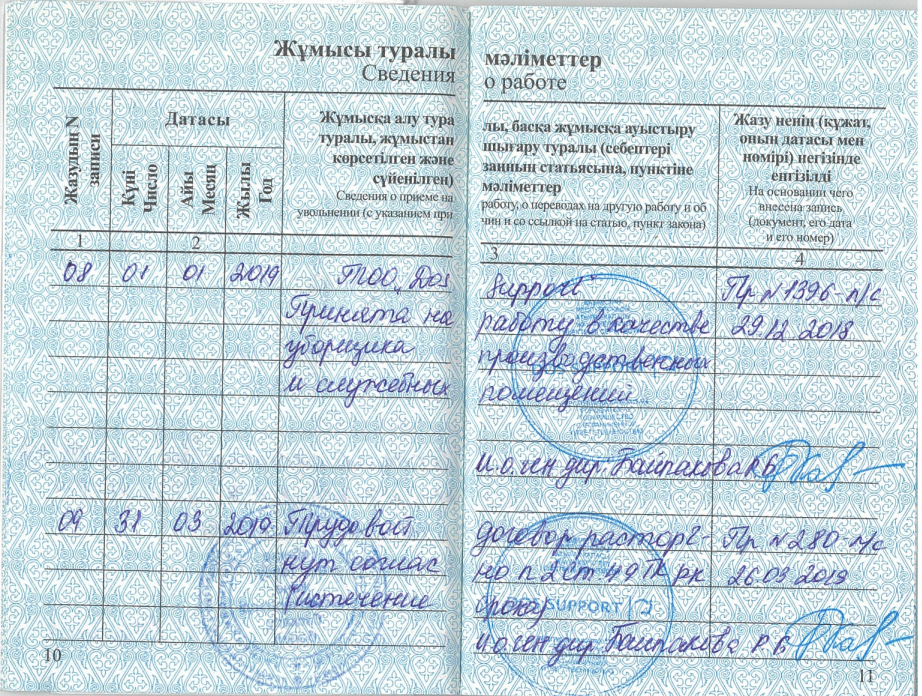 Жұмысы туралы мәліметтер
Сведения о работе
Жазудың N
записи
Датасы
Күні
Число
Айы
Месяц
Жылы
Год
Жұмысқа алу тура
туралы, жұмыстан
көрсетілген және
сүйенілген)
Сведения о приеме на
увольнении (с указанием при
лы, басқа жұмысқа ауыстыру
шығару туралы (себептері
заңның статьясына, пунктіне
мәліметтер
работу, о переводах на другую работу и об
чин и со ссылкой на статью, пункт закона)
Жазу ненің (құжат,
оның датасы мен
нөмірі) негізінде
енгізілді
На основании чего
внесена запись
(документ, его дата
и его номер)
1 2 3 4
08 01 01 2019 ТОО „Dos Support" Пр N 1396-п/с
Принята на работу в качестве 29.12.2018
уборщика производственных
и служебных помещений
И.о.ген дир. Байпакова Р.Б
09 31 03 2019 Трудовой договор расторг- Пр N 280-п/с
нут соглас но п 2 ст 49 ТК РК 26.03.2019
(истечение срока)
SUPPORT
И.о.ген дир. Байпакова Р.Б
10 11